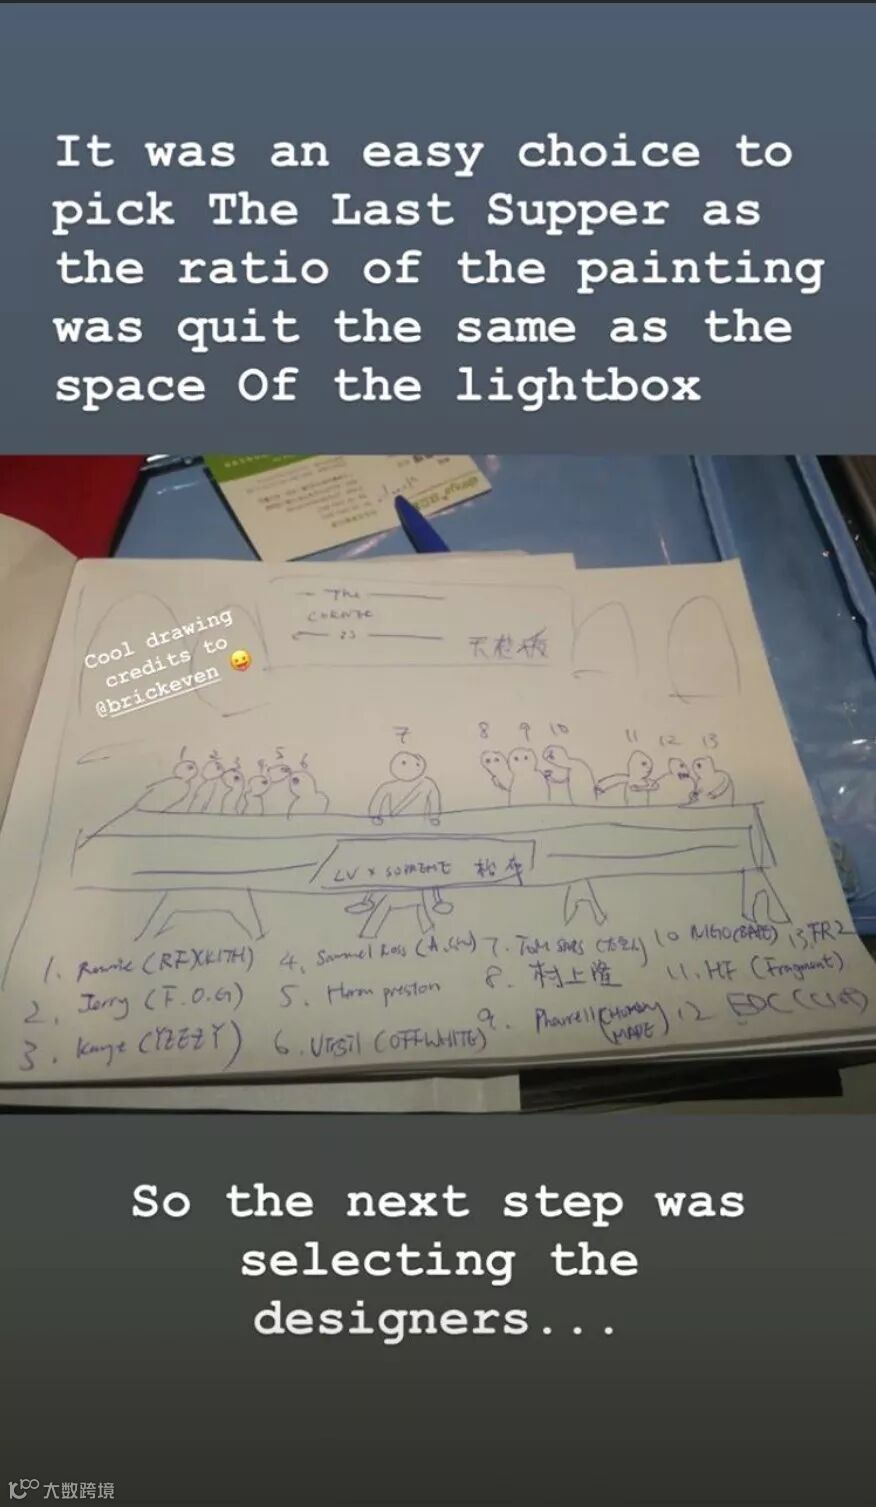 It was an easy choice to
pick The Last Supper as
the ratio of the painting
was quit the same as the
space Of the lightbox
The
CORNER
23
天花板
Cool drawing
credits to
@brickeven
1 2 3 4 5 6 7 8 9 10 11 12 13
LV x SUPREME
1. Ronnie (RFXKITH)
2. Jerry (F.O.G)
3. Kanye (YZEZY)
4. Sammel Ross (A.
5. Heron preston
6. Virgil (OFFWHITE)
7. Tom SACHS
8. 村上隆
9. Pharrell (HUMAN
MADE)
10 NIGO (BAPE)
11. HF (Fragment)
12 EDC (CLOT)
13. FR2
So the next step was
selecting the
designers...
大数跨境